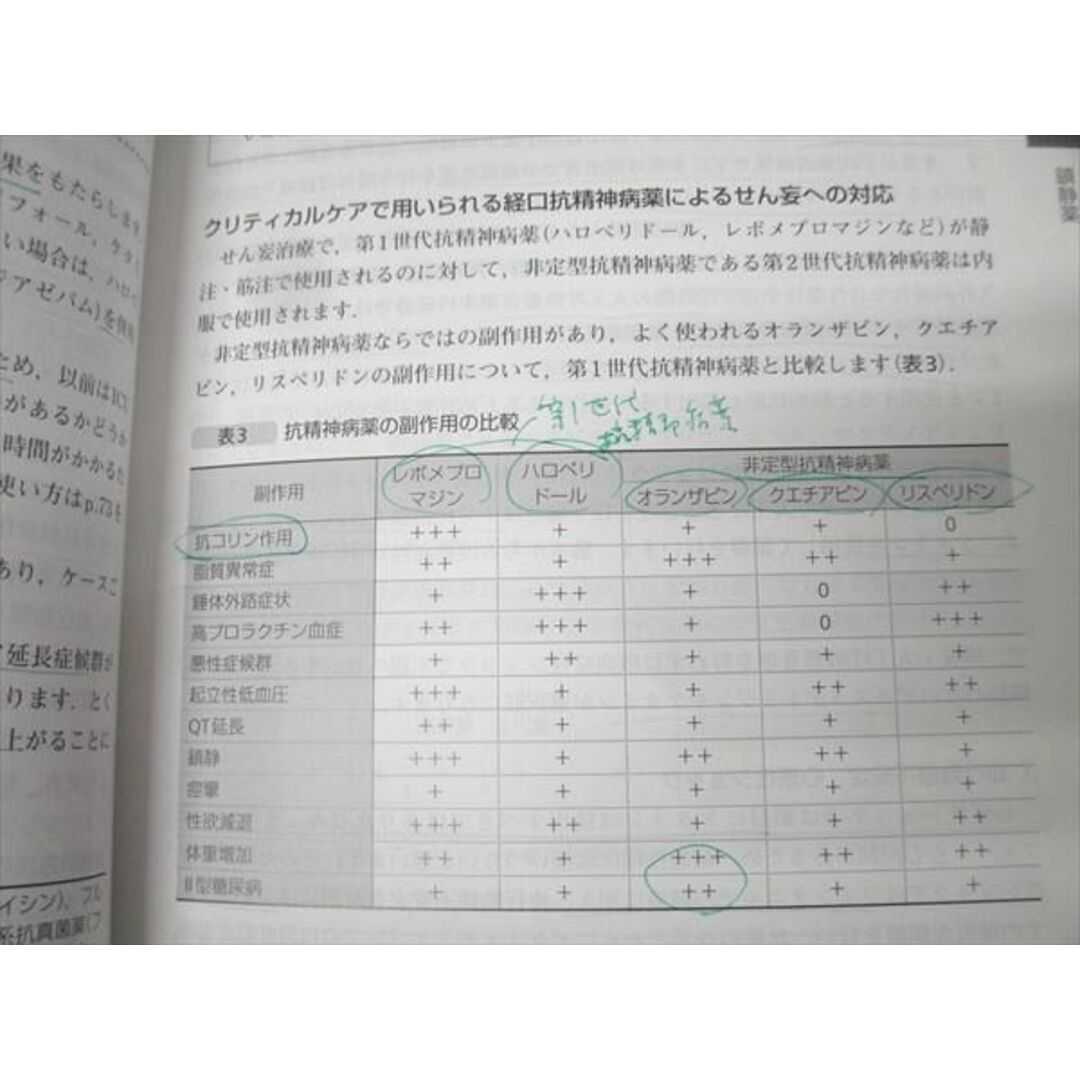 果をもたらします
フォール，ケタ
い場合は，ハロペ
ジアゼパム)を併用
ため，以前はICU
があるかどうか
時間がかかるた
使い方はp.73を
あり，ケースご
延長症候群が
ります．とく
上がることに
イシン)，フル
系抗真菌薬(フ
鎮静薬
クリティカルケアで用いられる経口抗精神病薬によるせん妄への対応
せん妄治療で，第1世代抗精神病薬(ハロペリドール，レボメプロマジンなど)が静
注・筋注で使用されるのに対して，非定型抗精神病薬である第2世代抗精神病薬は内
服で使用されます．
非定型抗精神病薬ならではの副作用があり，よく使われるオランザピン，クエチア
ピン，リスペリドンの副作用について，第1世代抗精神病薬と比較します(表3)．
第1世代
抗精神病薬
表3 抗精神病薬の副作用の比較
副作用 レボメプロマジン ハロペリドール 非定型抗精神病薬
オランザピン クエチアピン リスペリドン
抗コリン作用 +++ + + + 0
脂質異常症 ++ + +++ ++ +
錐体外路症状 + +++ + 0 ++
高プロラクチン血症 ++ +++ + 0 +++
悪性症候群 + ++ + + +
起立性低血圧 +++ + + ++ ++
QT延長 ++ + + + +
鎮静 +++ + ++ ++ +
痙攣 + + + + +
性欲減退 +++ ++ + + ++
体重増加 ++ + +++ ++ ++
II型糖尿病 + + ++ + +